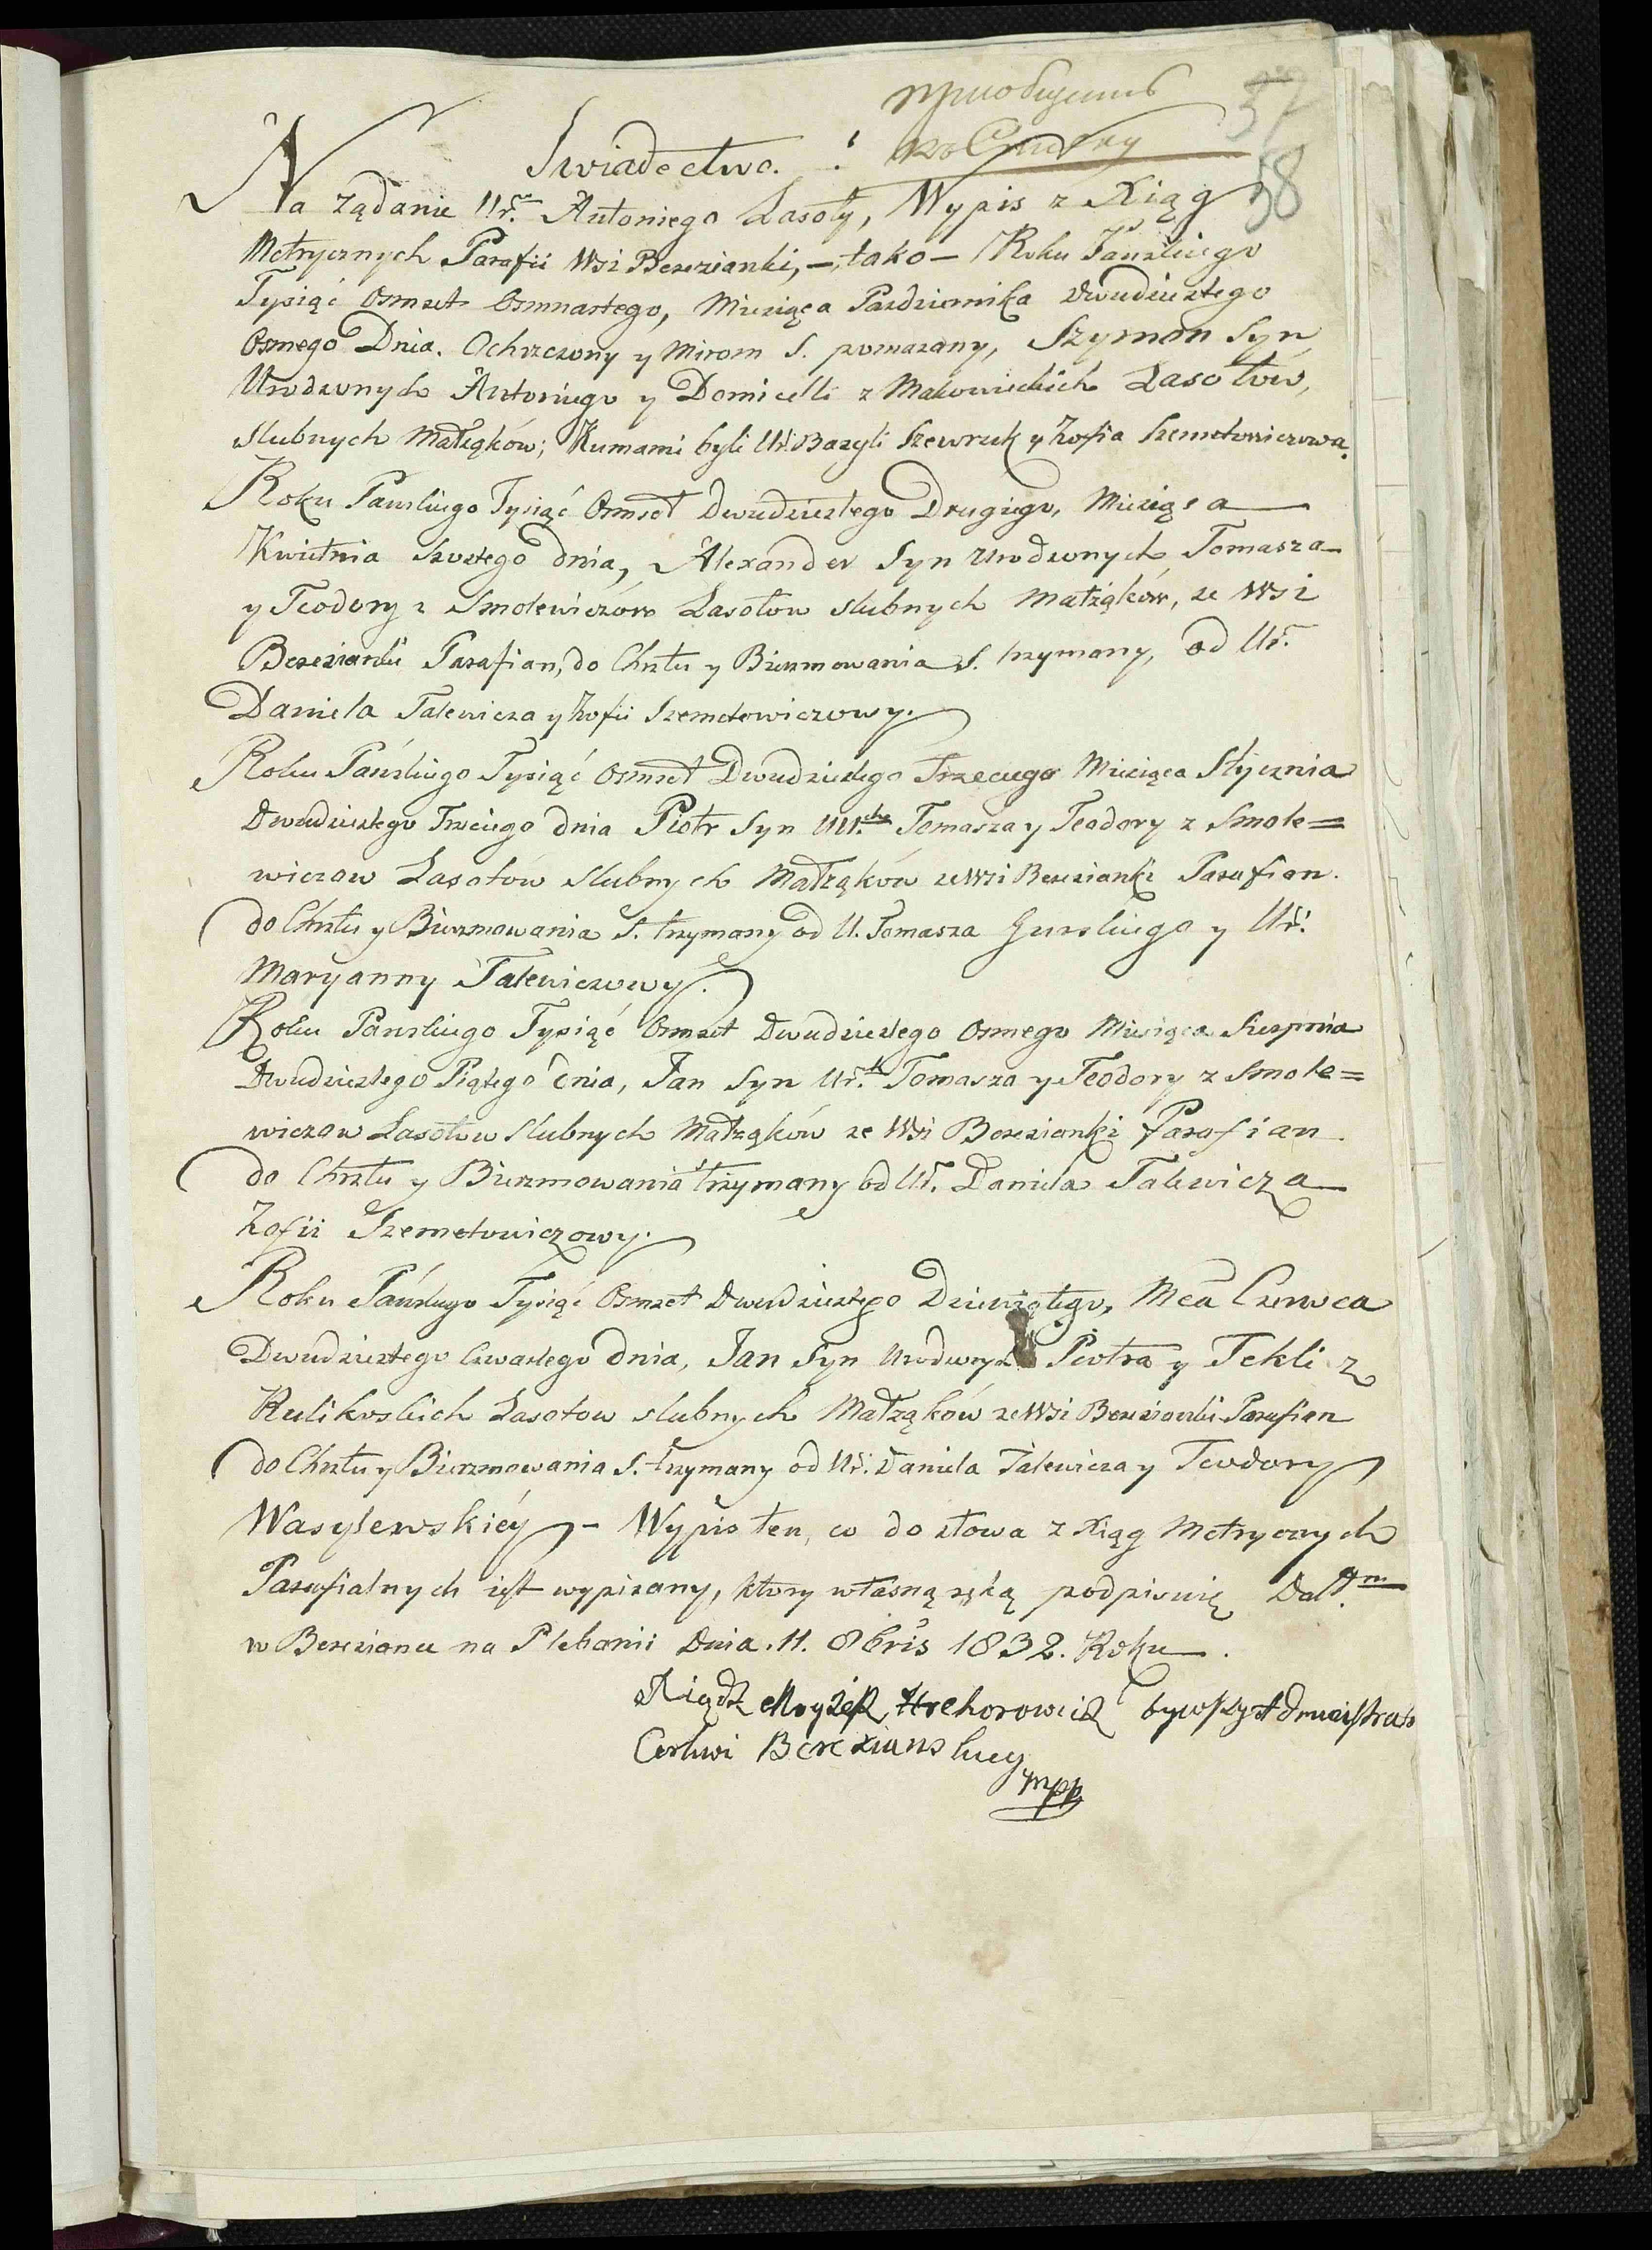 приобщить
къ
57
58
Swiadectwo.
Na żądanie Ur. Antoniego Lasoty, Wypis z Xiąg
Metrycznych Parafii Wsi Berezianki, – tako – Roku Panskiego
Tysiąć Osmset Osmnastego, Miesiąca Pazdziernika Dwudziestego
Osmego Dnia. Ochrzczony y Mirom S. pomazany, Szymon Syn
Urodzonych Antoniego y Domicelli z Makowieckich Lasotów,
slubnych Małżąków; Kumami byli Ur. Bazyli Szewruk y Zofia Szemetowiczowa.
Roku Panskiego Tysiąć Osmset Dwudziestego Drugiego, Miesiąca
Kwietnia Szostego dnia, Alexander Syn Urodzonych Tomasza
y Teodory z Smolewiczów Lasotow slubnych Małżąków, ze Wsi
Berezianki Parafian, do Chrztu y Bierzmowania S. trzymany, od Ur.
Daniela Talewicza y Zofii Szemetowiczowy.
Roku Pańskiego Tysiąć Osmset Dwudziestego Trzeciego Miesiąca Stycznia
Dwudziestego Trzeciego dnia Piotr Syn Tomasza y Teodory z Smole=
wiczow Lasotow Slubnych Małżąków ze Wsi Berezianki Parafian.
do Chrztu y Bierzmowania S. trzymany od U. Tomasza Gurskiego y Ur.
Maryanny Talewiczowy.
Roku Panskiego Tysiąć Osmset Dwudziestego Osmego Miesiąca Sierpnia
Dwudziestego Piątego dnia, Jan Syn Ur. Tomasza y Teodory z Smole=
wiczow Lasotow Slubnych Małżąków ze Wsi Berezianki Parafian.
do Chrztu y Bierzmowania trzymany od Ur. Daniela Talewicza
Zofii Szemetowiczowy.
Roku Pańskiego Tysiąć Osmset Dwudziestego Dziewiątego, Mca Czerwca
Dwudziestego Czwartego dnia, Jan Syn Urodzonych Piotra y Tekli z
Kulikoskich Lasotow slubnych Małżąków ze Wsi Berezianki Parafian
do Chrztu y Bierzmowania S. trzymany od Ur. Daniela Talewicza y Teodory
Wasylewskiéy – Wypis ten, co do słowa z Xiąg Metrycznych
Parafialnych iest wypisany, ktory własną ręką podpisuię
w Bereziance na Plebanii Dnia. 11. 8bris 1832. Roku.
Xiądz Hrehorowicz bywszy Administrator
Cerkwi Berezianskiey
mpp